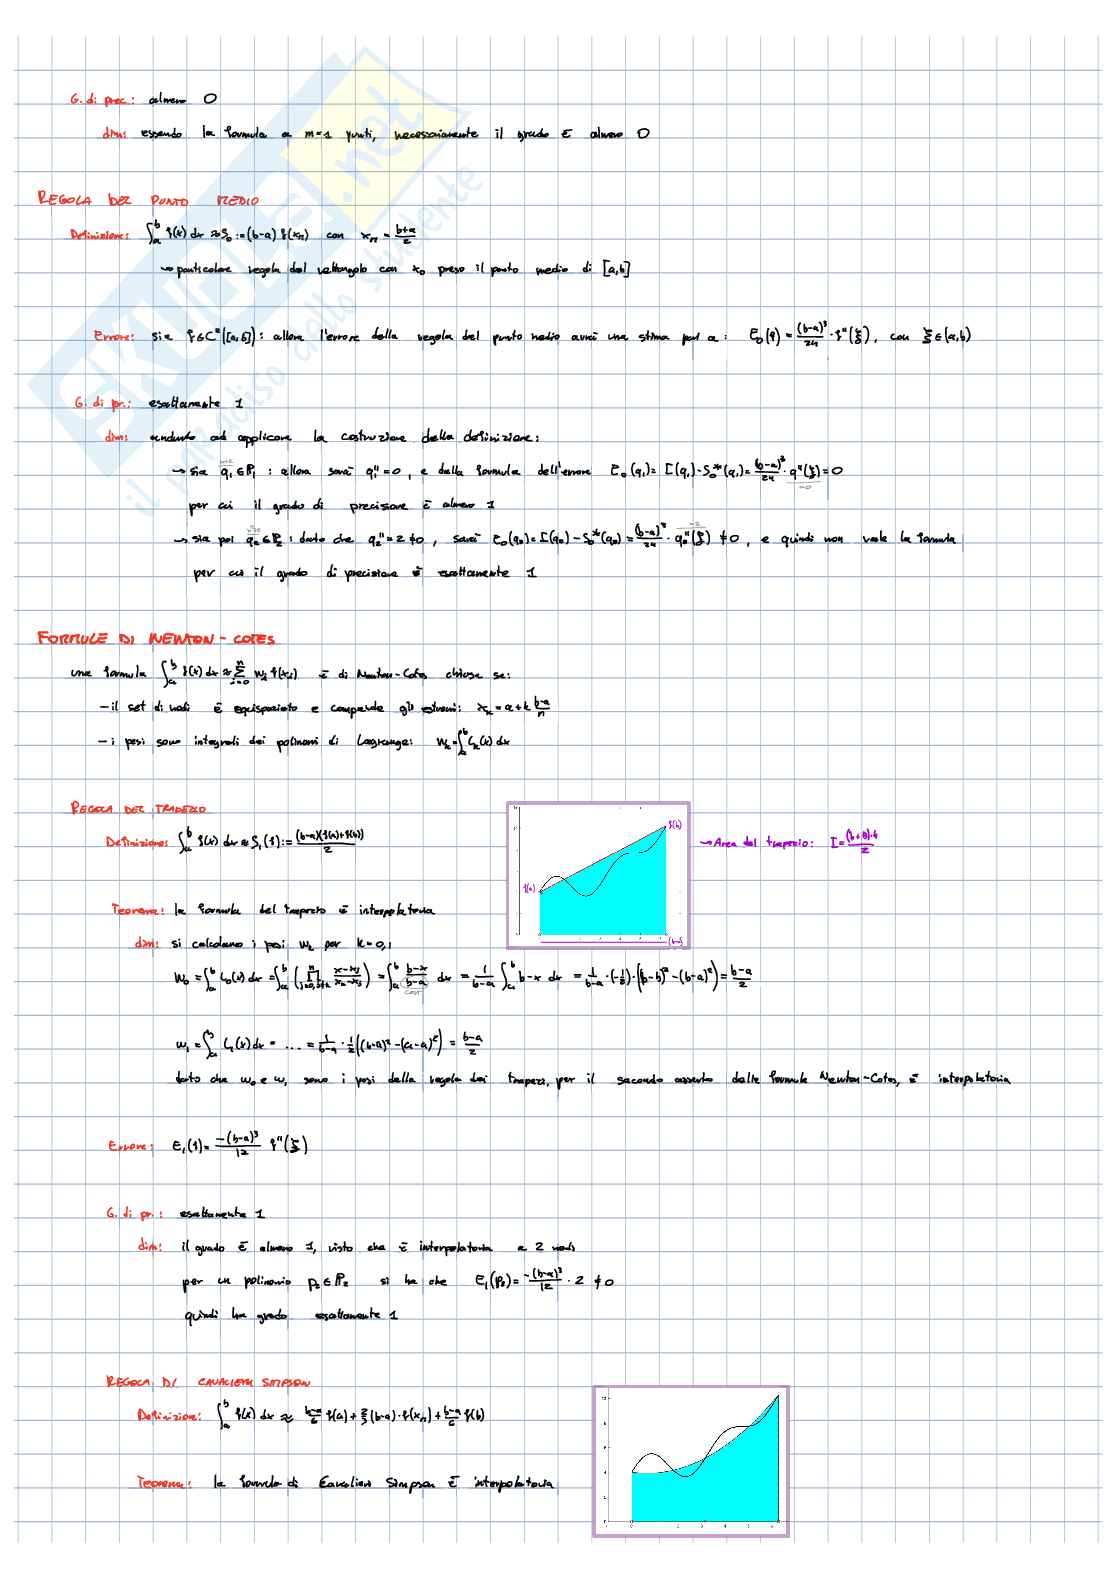 G. di prec.: almeno 0
dim: essendo la formula a m=1 punti, necessariamente il grado è almeno 0
REGOLA DEL PUNTO MEDIO
Definizione: ∫_a^b f(x) dx ≈ S_0 := (b-a) f(x_m) con x_m = (b+a)/2
↝ particolare regola del rettangolo con x_0 preso il punto medio di [a,b]
Errore: sia f∈C²([a,b]): allora l'errore della regola del punto medio avrà una stima pari a: E_0(f) = (b-a)³/24 · f''(ξ), con ξ∈(a,b)
G. di pr.: esattamente 1
dim: andando ad applicare la costruzione della definizione:
→ sia q_1∈P_1 : allora sarà q_1''=0, e dalla formula dell'errore E_0(q_1) = I(q_1) - S_0*(q_1) = (b-a)³/24 · q''(ξ) = 0
=0
per cui il grado di precisione è almeno 1
→ sia poi q_2∈P_2 : dato che q_2''=2≠0, sarà E_0(q_2) = I(q_2) - S_0*(q_2) = (b-a)³/24 · q_2''(ξ) ≠0, e quindi non vale la formula
per cui il grado di precisione è esattamente 1
FORMULE DI NEWTON-COTES
una formula ∫_a^b f(x) dx ≈ Σ_{i=0}^n w_i f(x_i) è di Newton-Cotes chiusa se:
- il set di nodi è equispaziato e comprende gli estremi: x_k = a+k (b-a)/n
- i pesi sono integrali dei polinomi di Lagrange: w_k = ∫_a^b L_k(x) dx
REGOLA DEL TRAPEZIO
Definizione: ∫_a^b f(x) dx ≈ S_1(f) := (b-a)(f(a)+f(b))/2
f(a)
f(b)
(b-a)
↝ Area del trapezio: I = (b+B)·h/2
Teorema: la formula del trapezio è interpolatoria
dim: si calcolano i pesi w_k per k=0,1
w_0 = ∫_a^b L_0(x) dx = ∫_a^b (∏_{j=0, j≠k}^n (x-x_j)/(x_k-x_j)) = ∫_a^b (b-x)/(b-a) dx = 1/(b-a) ∫_a^b b-x dx = 1/(b-a) · (-1/2) · ((b-b)² - (b-a)²) = (b-a)/2
cost
w_1 = ∫_a^b L_1(x) dx = ... = 1/(b-a) · 1/2 ((b-a)² - (a-a)²) = (b-a)/2
dato che w_0 e w_1 sono i pesi della regola dei trapezi, per il secondo asserto delle formule Newton-Cotes, è interpolatoria
Errore: E_1(f) = -(b-a)³/12 f''(ξ)
G. di pr.: esattamente 1
dim: il grado è almeno 1, visto che è interpolatoria a 2 nodi
per un polinomio p_2∈P_2 si ha che E_1(p_2) = -(b-a)³/12 · 2 ≠0
quindi ha grado esattamente 1
REGOLA DI CAVALIERI SIMPSON
Definizione: ∫_a^b f(x) dx ≈ (b-a)/6 f(a) + 2/3 (b-a)·f(x_m) + (b-a)/6 f(b)
Teorema: la formula di Cavalieri Simpson è interpolatoria
SKUOLA.net
il paradiso dello studente